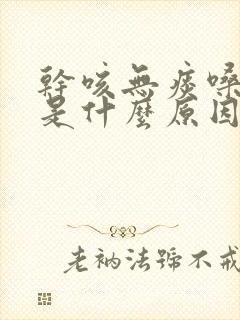 幹咳無痰嗓
是什麼原因
老衲法號不戒